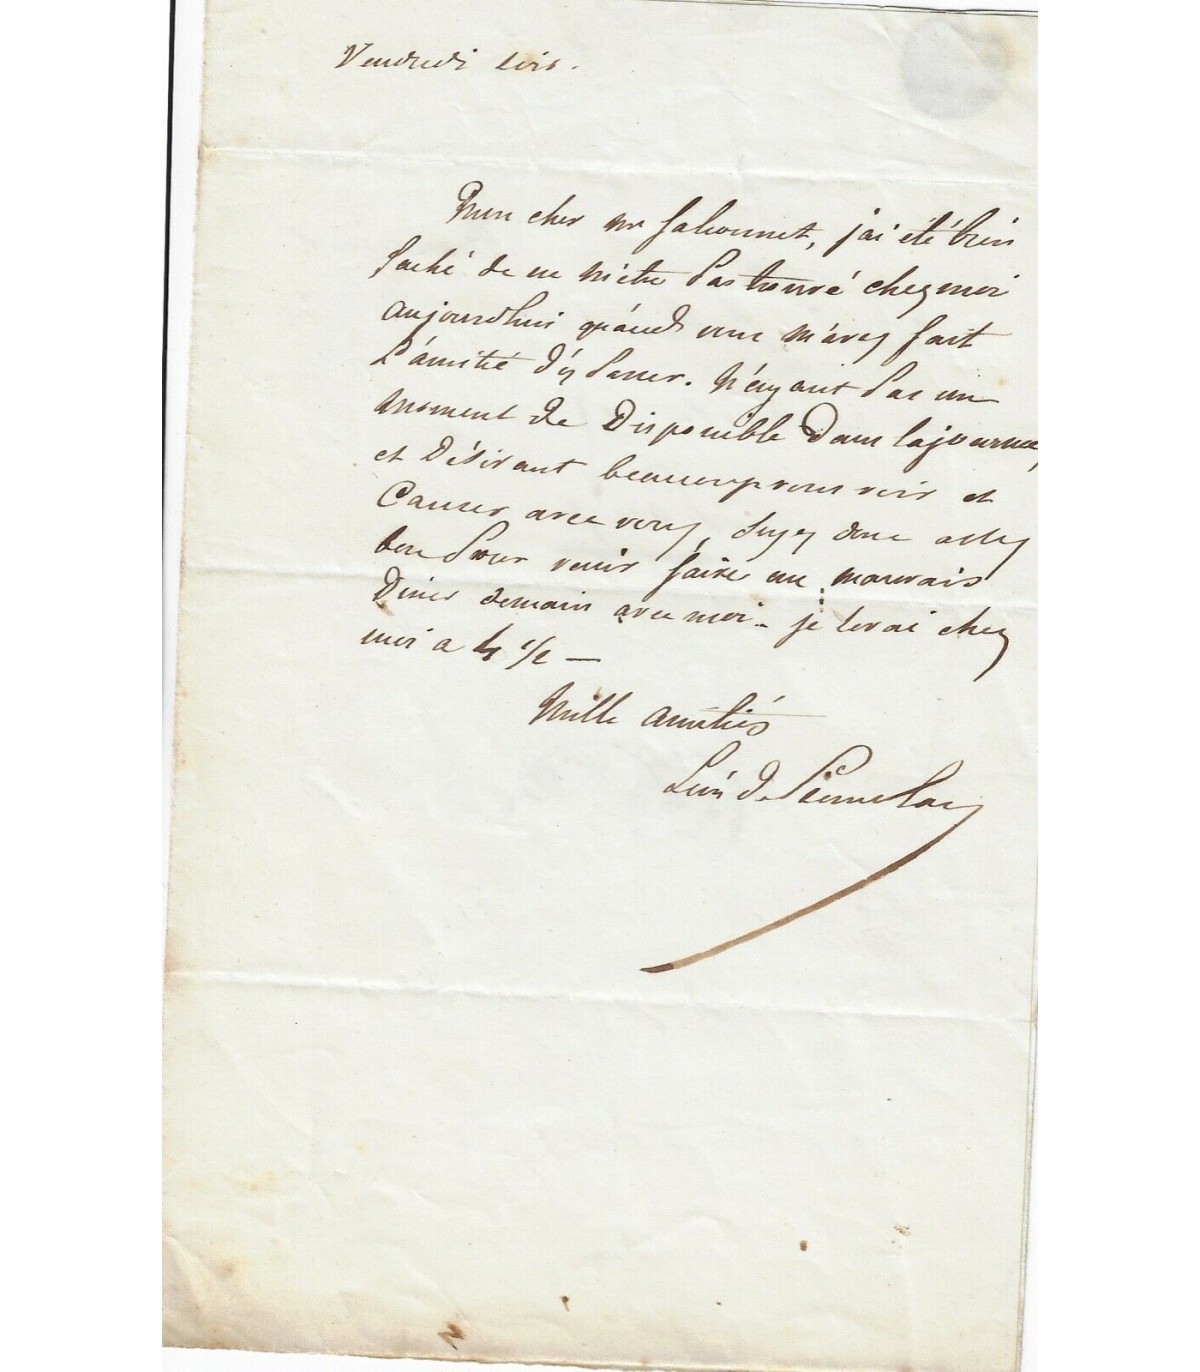 Vendredi soir.
Mon cher Mr Falconnet, j'ai été bien
faché de ne m'être pas trouvé chez moi
aujourdhui quand vous m'avez fait
l'amitié d'y passer. N'ayant pas un
moment de disponible dans la journée,
et désirant beaucoup vous voir et
causer avec vous, soyez donc assez
bon pour venir faire un mauvais
diner demain avec moi - je serai chez
moi a 4 1/2 —
Mille amitiés
Léon de